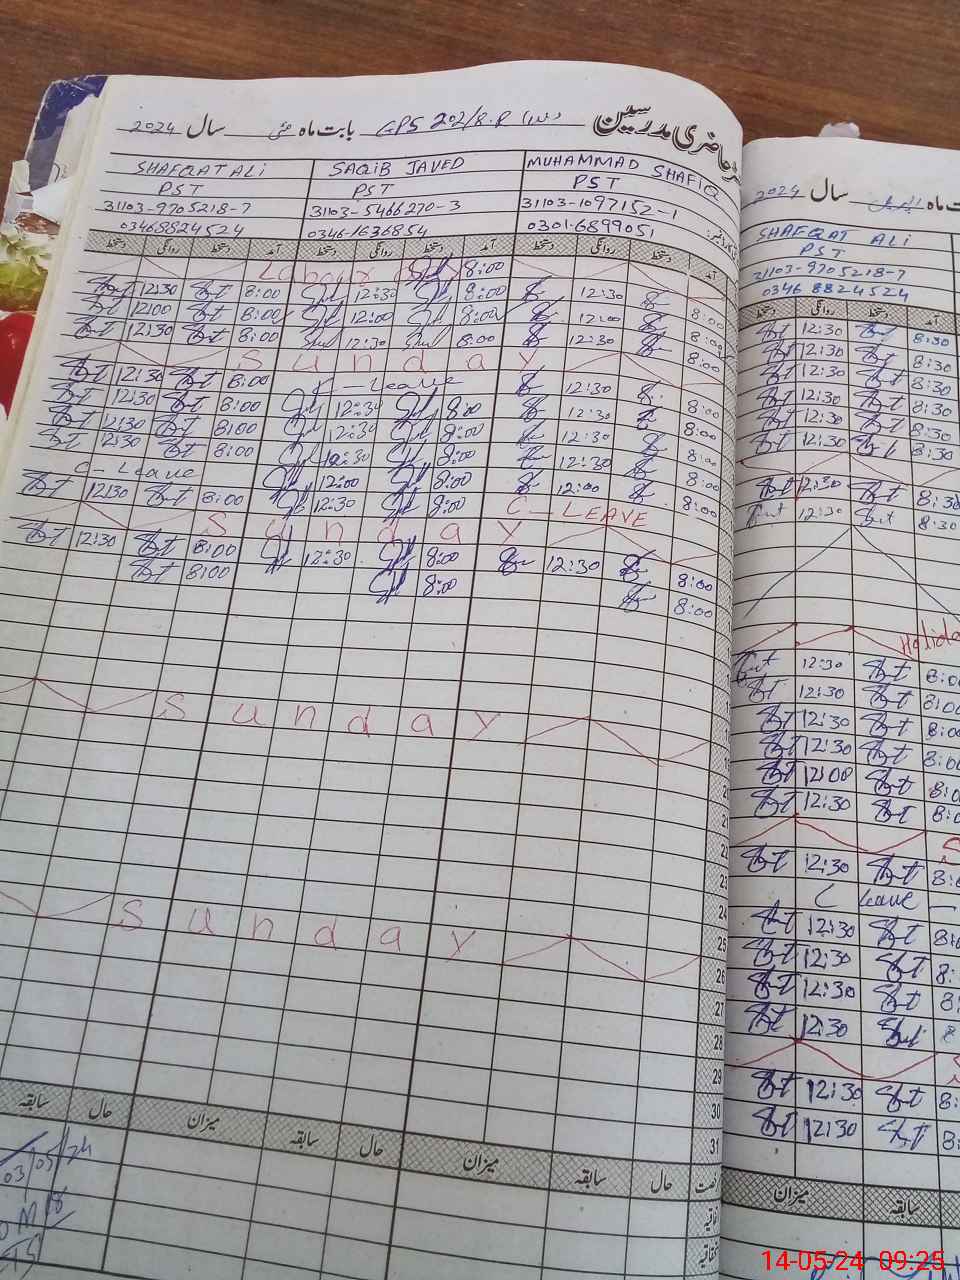 حاضری مدرسین GPS 202/8.R بابت ماہ مئی سال 2024
SHAFQAT ALI SAQIB JAVED MUHAMMAD SHAFIQ
PST PST PST
31103-9705218-7 31103-5466270-3 31103-1097152-1
03468824524 0346-1636854 0301-6899051
آمد دستخط روانگی دستخط آمد دستخط روانگی دستخط آمد دستخط روانگی دستخط
Labour 8:00
8:00 12:30 8:00 12:30 8:00 12:30
8:00 12:00 8:00 12:00 8:00 12:00
8:00 12:30 8:00 12:30 8:00 12:30
Sunday
8:00 12:30 C-Leave 8:00 12:30
8:00 12:30 8:00 12:30 8:00 12:30
8:00 12:30 8:00 12:30 8:00 12:30
8:00 12:30 8:00 12:30 8:00 12:30
C-Leave 8:00 12:00 8:00 12:00
8:00 12:30 8:00 12:30 C-LEAVE
Sunday
8:00 12:30 8:00 12:30 8:00 12:30
8:00 8:00 8:00
Sunday
22
23
24
25
Sunday
26
27
28
29
30
31
رخصت حال سابقہ میزان حال سابقہ میزان حال سابقہ
اتفاقیہ
03/05/24
ماہ اپریل سال 2024
SHAFQAT ALI
PST
31103-9705218-7
0346 8824524
آمد دستخط روانگی دستخط
8:30 12:30
8:30 12:30
8:30 12:30
8:30 12:30
8:30 12:30
8:30 12:30
8:30 12:30
8:30 12:30
Holida
8:00 12:30
8:00 12:30
8:00 12:30
8:00 12:30
8:00 12:00
8:00 12:30
S
8:00 12:30
C Leave
8:00 12:30
8: 12:30
8: 12:30
8 12:30
S
8: 12:30
8: 12:30
سابقہ میزان
14-05-24 09:25